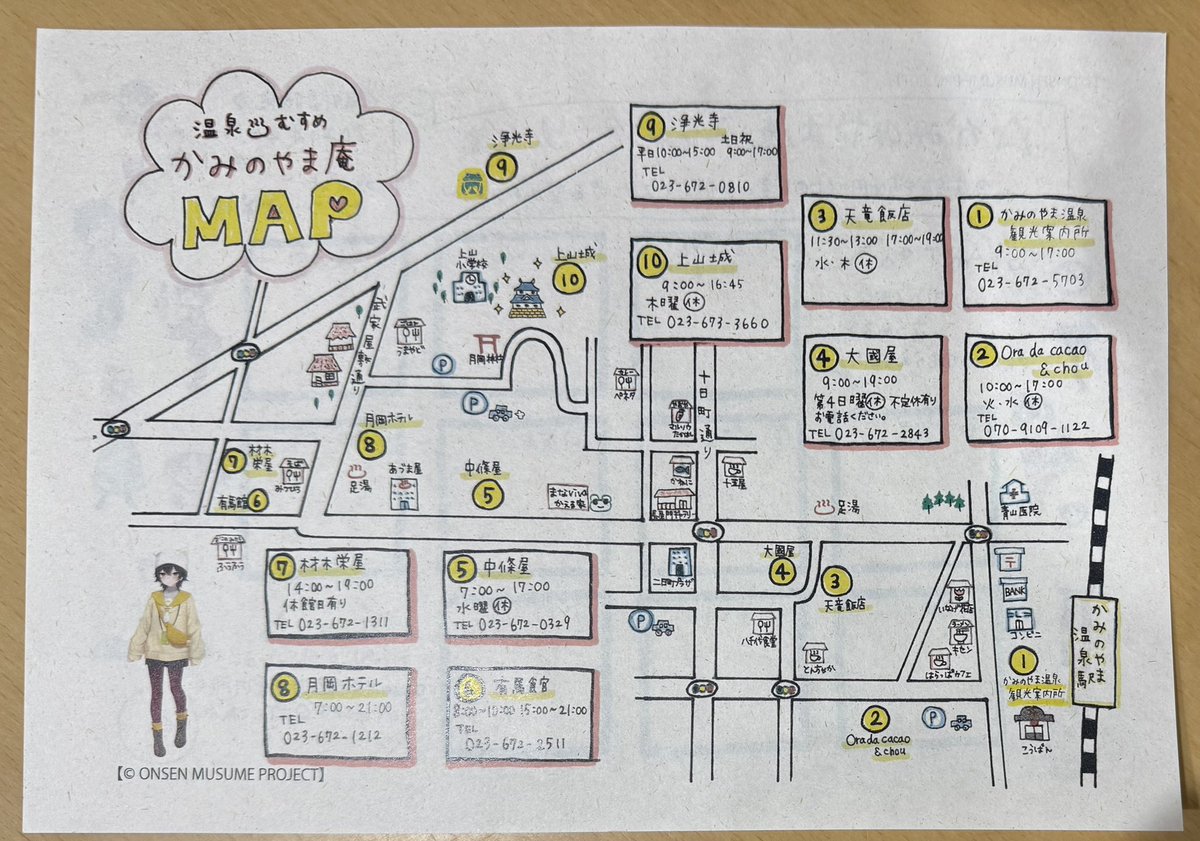 温泉♨むすめ
かみのやま庵
MAP
浄光寺
9
9 浄光寺
土日祝
平日10:00~15:00 9:00~17:00
TEL
023-672-0810
10 上山城
9:00~16:45
木曜休
TEL 023-673-3660
3 天竜飯店
11:30~13:00 17:00~19:00
水・木休
1 かみのやま温泉
観光案内所
9:00~17:00
TEL
023-672-5703
4 大國屋
9:00~19:00
第4日曜休 不定休有り
お電話ください。
TEL 023-672-2843
2 Orada cacao
& chou
10:00~17:00
火・水休
TEL
070-9109-1122
上山
小学校
上山城
10
武家屋敷通り
うまやど
月岡神社
P
P
カレー
ペネタ
十日町通り
月岡ホテル
8
足湯
あづま屋
中條屋
5
まなviva
かえる家
かねに
十五屋
長屋門ギャラリー
7 材木
栄屋
有馬館 6
そば
みつひろ
ふうりゅう
足湯
青山医院
〒
BANK
コンビニ
二日町プラザ
大國屋
4
3
天竜飯店
P
八千代食堂
とんちんかん
いなげ花店
ラーメン
キセン
はらっぱカフェ
1
かみのやま温泉
観光案内所
こうばん
かみのやま
温泉駅
2
Orada cacao
& chou
P
7 材木栄屋
14:00~19:00
休館日有り
TEL 023-672-1311
5 中條屋
7:00~17:00
水曜休
TEL 023-672-0329
8 月岡ホテル
7:00~21:00
TEL
023-672-1212
6 有馬館
8:00~10:00 15:00~21:00
TEL
023-672-2511
【© ONSEN MUSUME PROJECT】